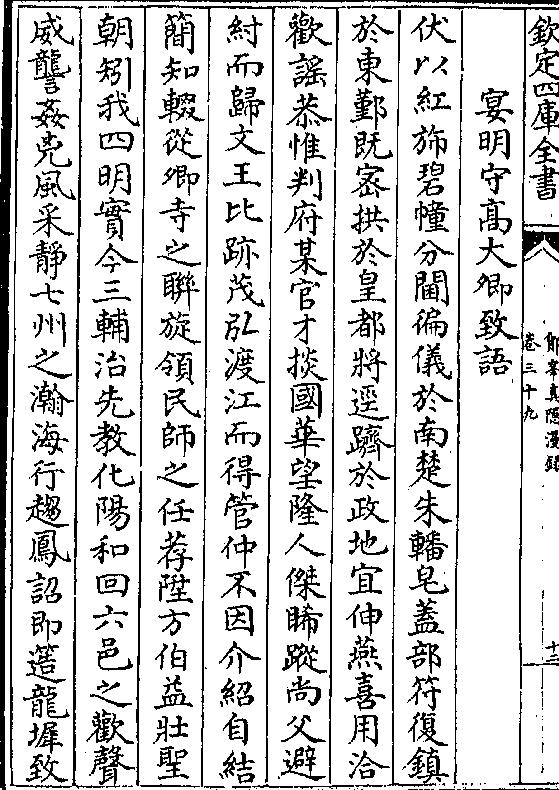 欽定四庫全書
鄮峯真隱漫録
卷三十九
十二
宴明守高大卿致語
伏以紅斾碧幢分閫徧儀於南楚朱轓皂蓋部符復鎮
於東鄞既宻拱於皇都將逕躋於政地宜伸燕喜用洽
歡謡恭惟判府某官才掞國華望隆人傑睎蹤尚父避
紂而歸文王比跡茂弘渡江而得管仲不因介紹自結
簡知輟從卿寺之聯旋領民師之任荐陞方伯益壯聖
朝矧我四明實今三輔治先教化陽和回六邑之歡聲
威讋姦兇風采靜七州之瀚海行趨鳳詔即簉龍墀致